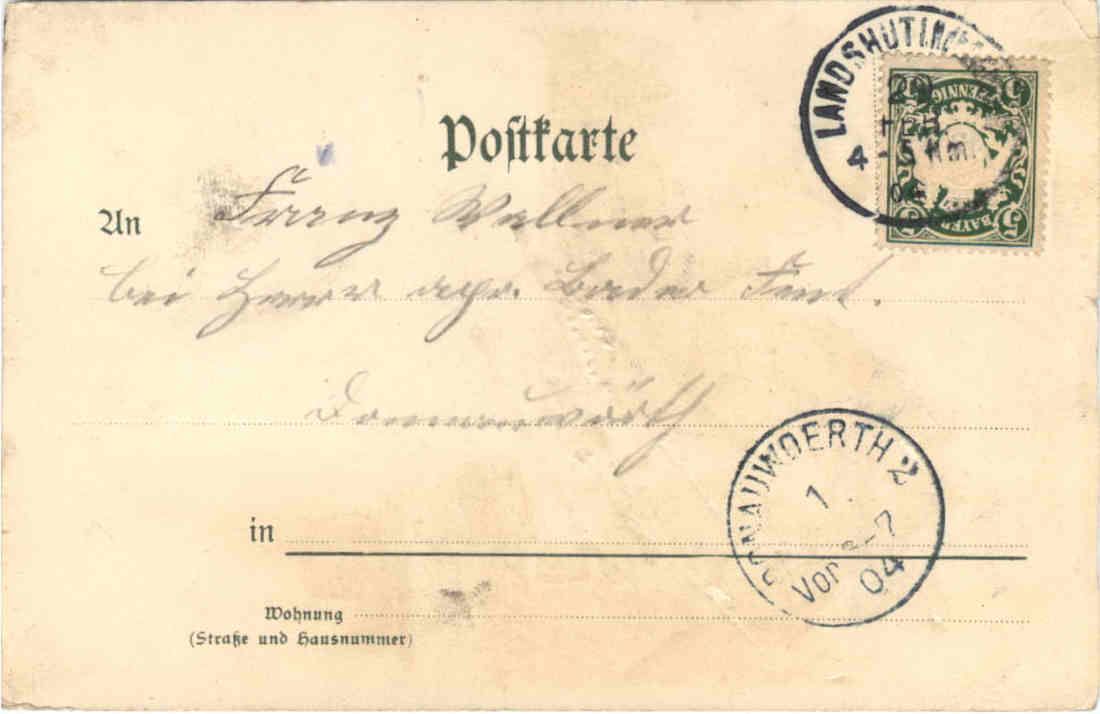 LANDSHUT I.
29
FEB
4-5 Nm.
04
5 PFENNIG 5
5 BAYERN 5
Postkarte
An Franz Wallner
bei Herrn Bader
Donauwörth
DONAUWOERTH 2
1
Vor 7
04
in
Wohnung
(Straße und Hausnummer)